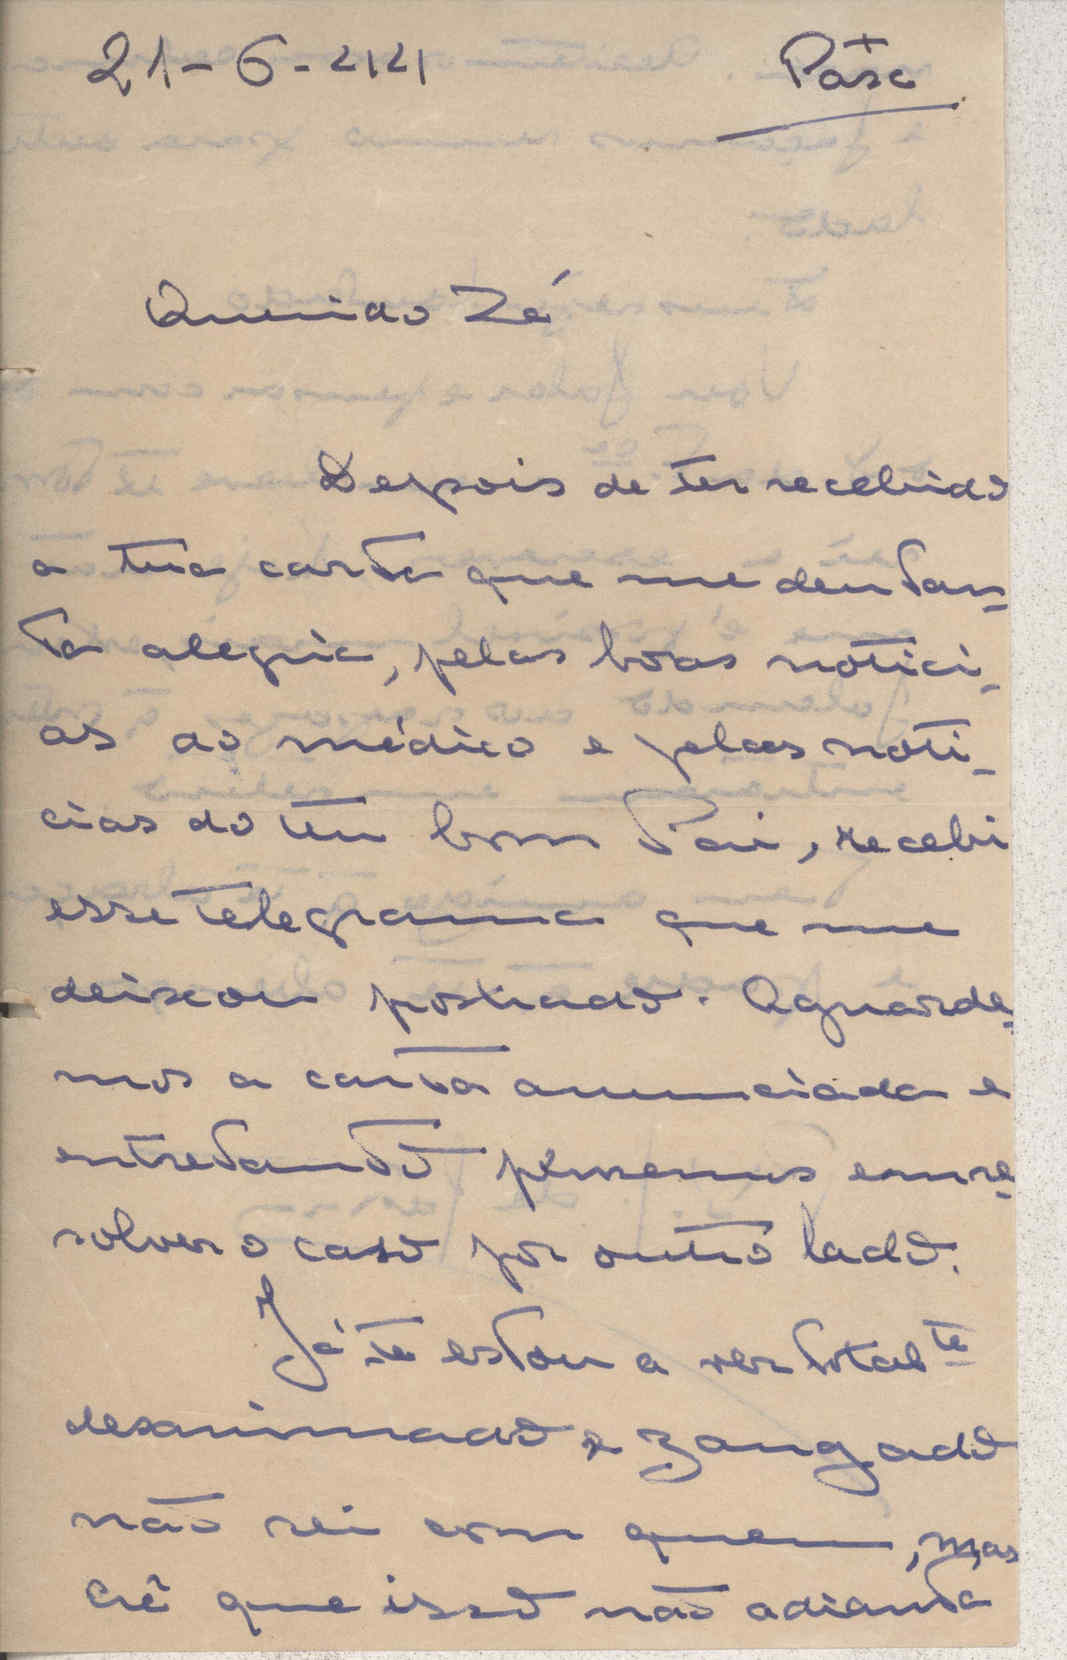 21-6-441
Querido Zé
Depois de ter recebido
a tua carta que me deu tan-
ta alegria, pelas boas notici-
as do médico e pelas noti-
cias do teu bom Pai, recebi
esse telegrama que me
deixou prostrado. Aguarde-
mos a carta anunciada e
entretanto pensemos em re-
solver o caso por outro lado.
Já te estou a ver totalte
desanimado e zangado
não sei com quem, mas
crê que isso não adianta